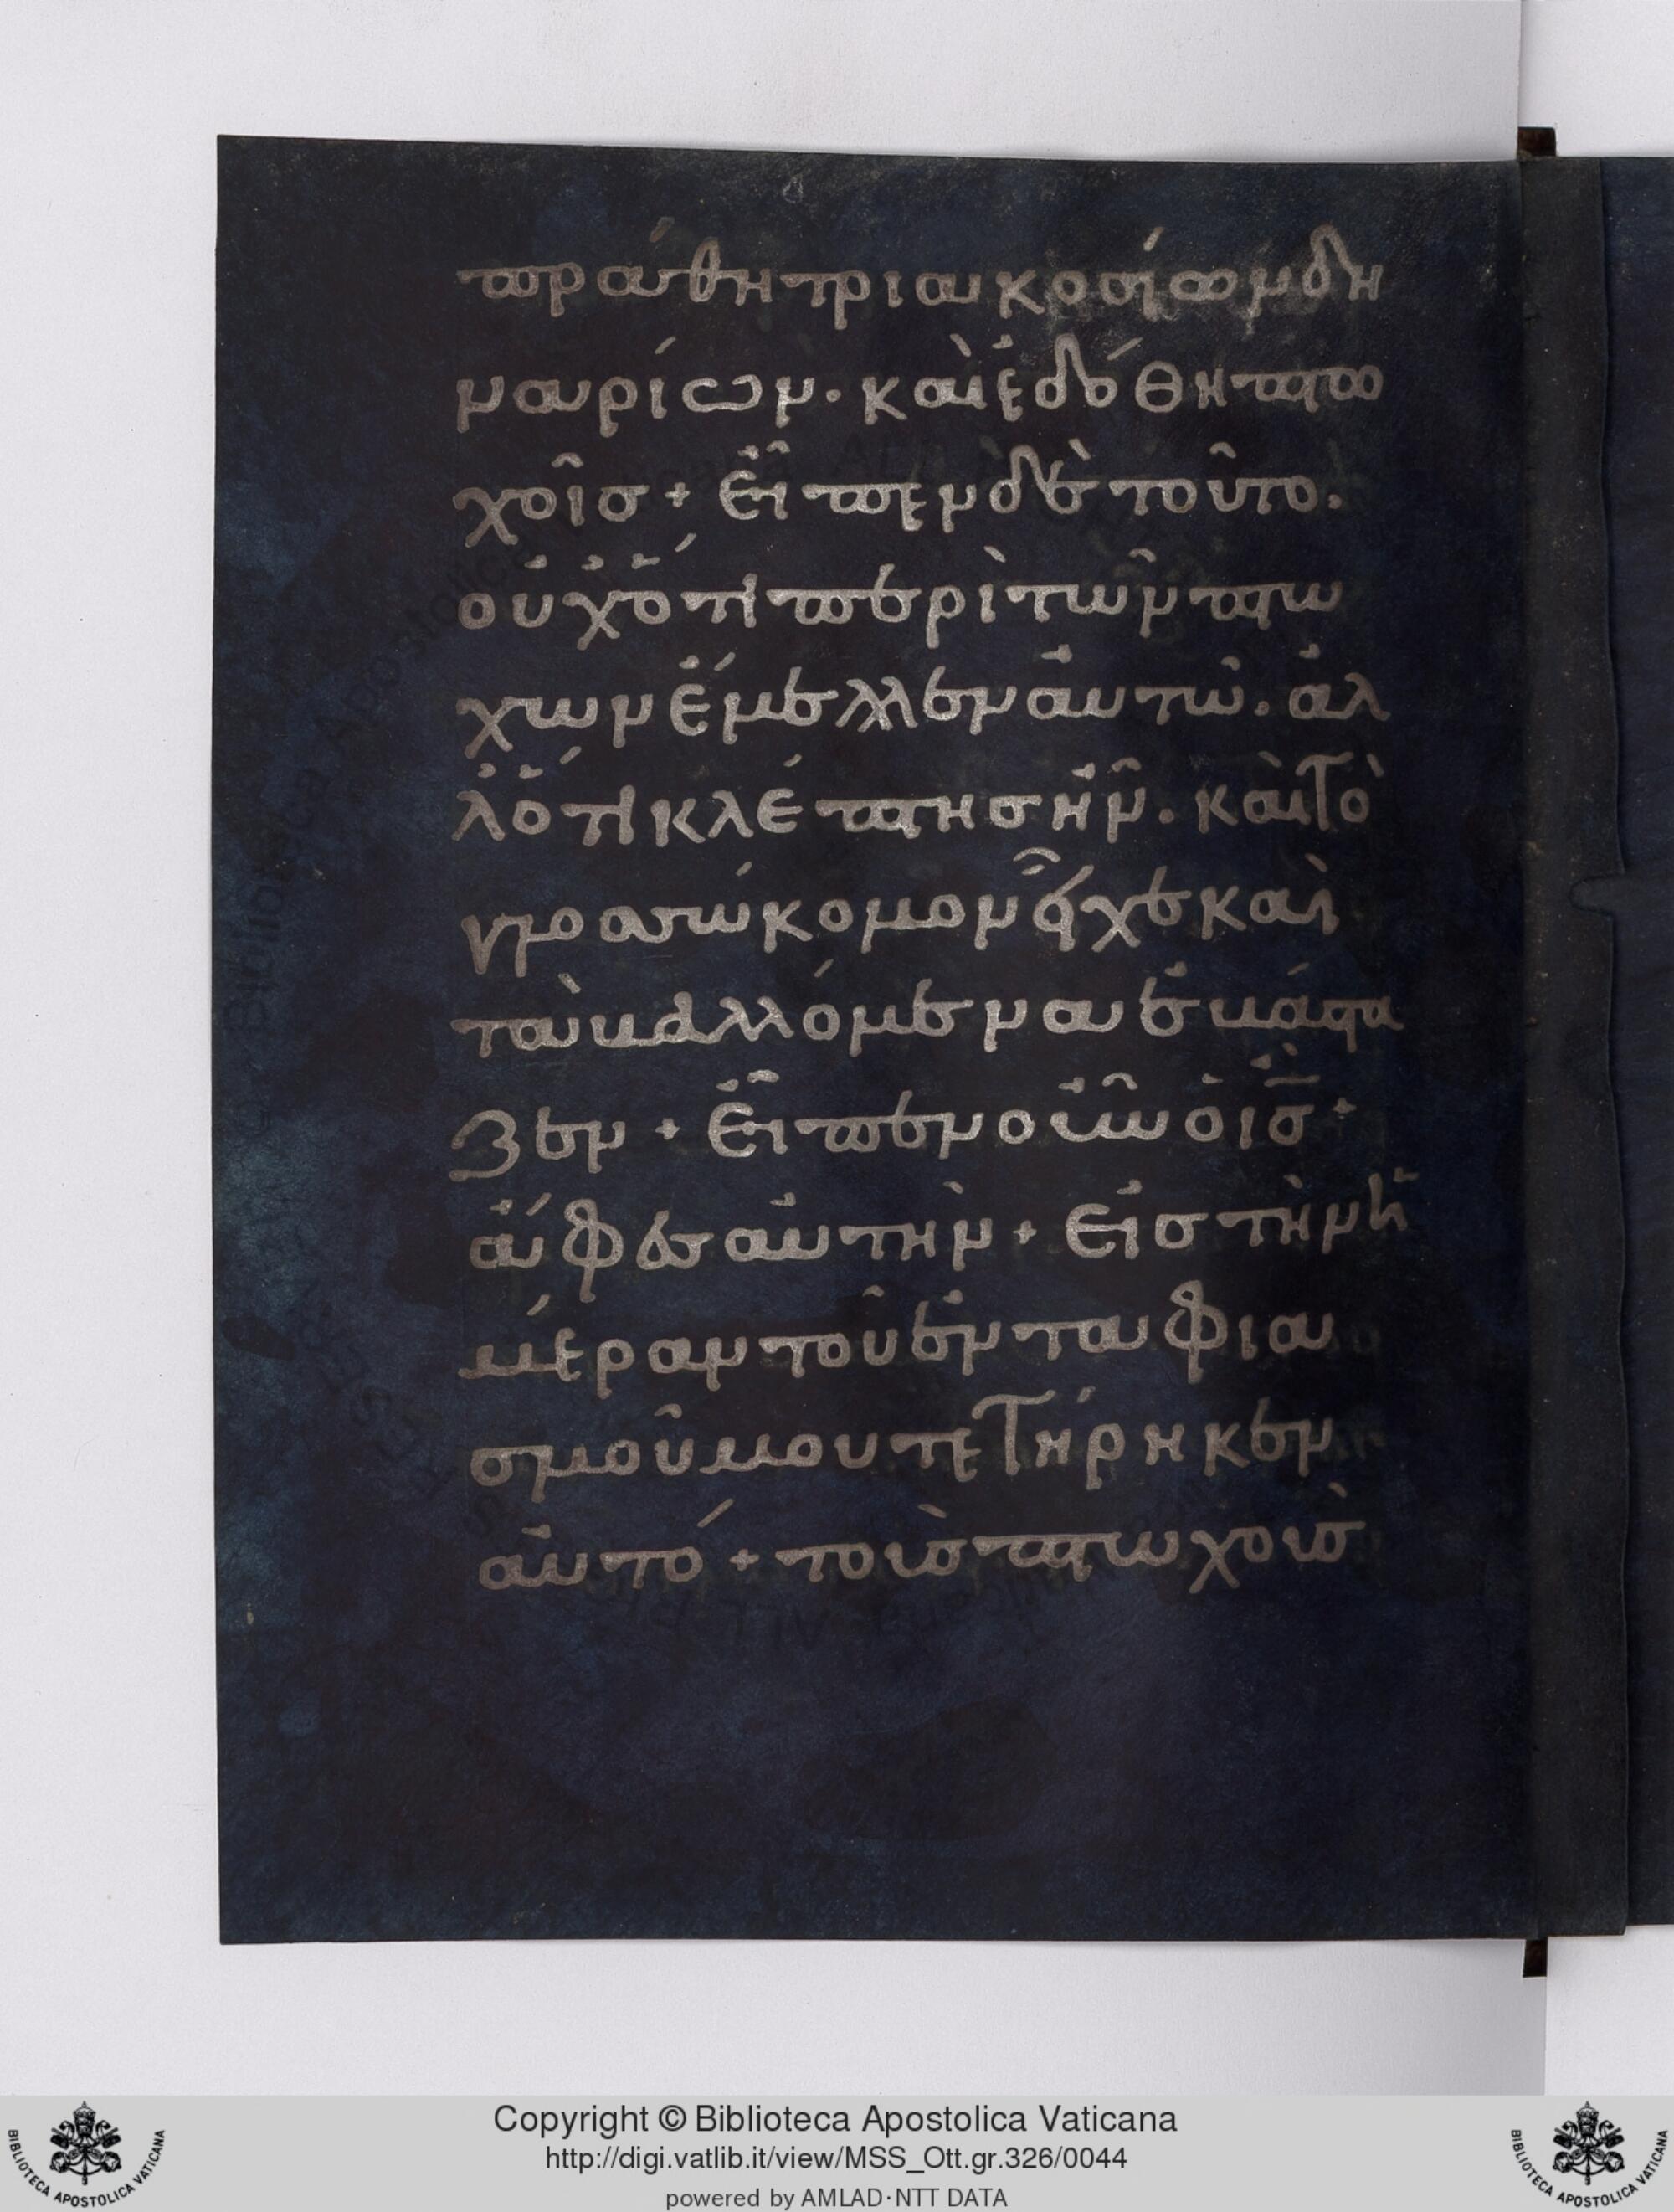 πράθη τριακοσίων δη
ναρίων. καὶ ἐδόθη πτω
χοῖσ + εἶπεν δὲ τοῦτο.
οὐχ ὅτι περὶ τῶν πτω
χων ἔμελλεν αὐτῶ. ἀλ
λ ὅτι κλέπτησ ἦν. καὶ τὸ
γλοσσώκομον εἶχε καὶ
τὰ βαλλόμενα ἐβάστα
ζεν + εἶπεν οὖν ὁ ισ +
ἄφεσ αὐτὴν + εἰσ τὴν ἡ
μέραν τοῦ ἐνταφια
σμοῦ μου τετήρηκεν
αὐτό + τοὺσ πτωχοὺσ
Copyright © Biblioteca Apostolica Vaticana
http://digi.vatlib.it/view/MSS_Ott.gr.326/0044
powered by AMLAD·NTT DATA
BIBLIOTECA APOSTOLICA VATICANA
BIBLIOTECA APOSTOLICA VATICANA